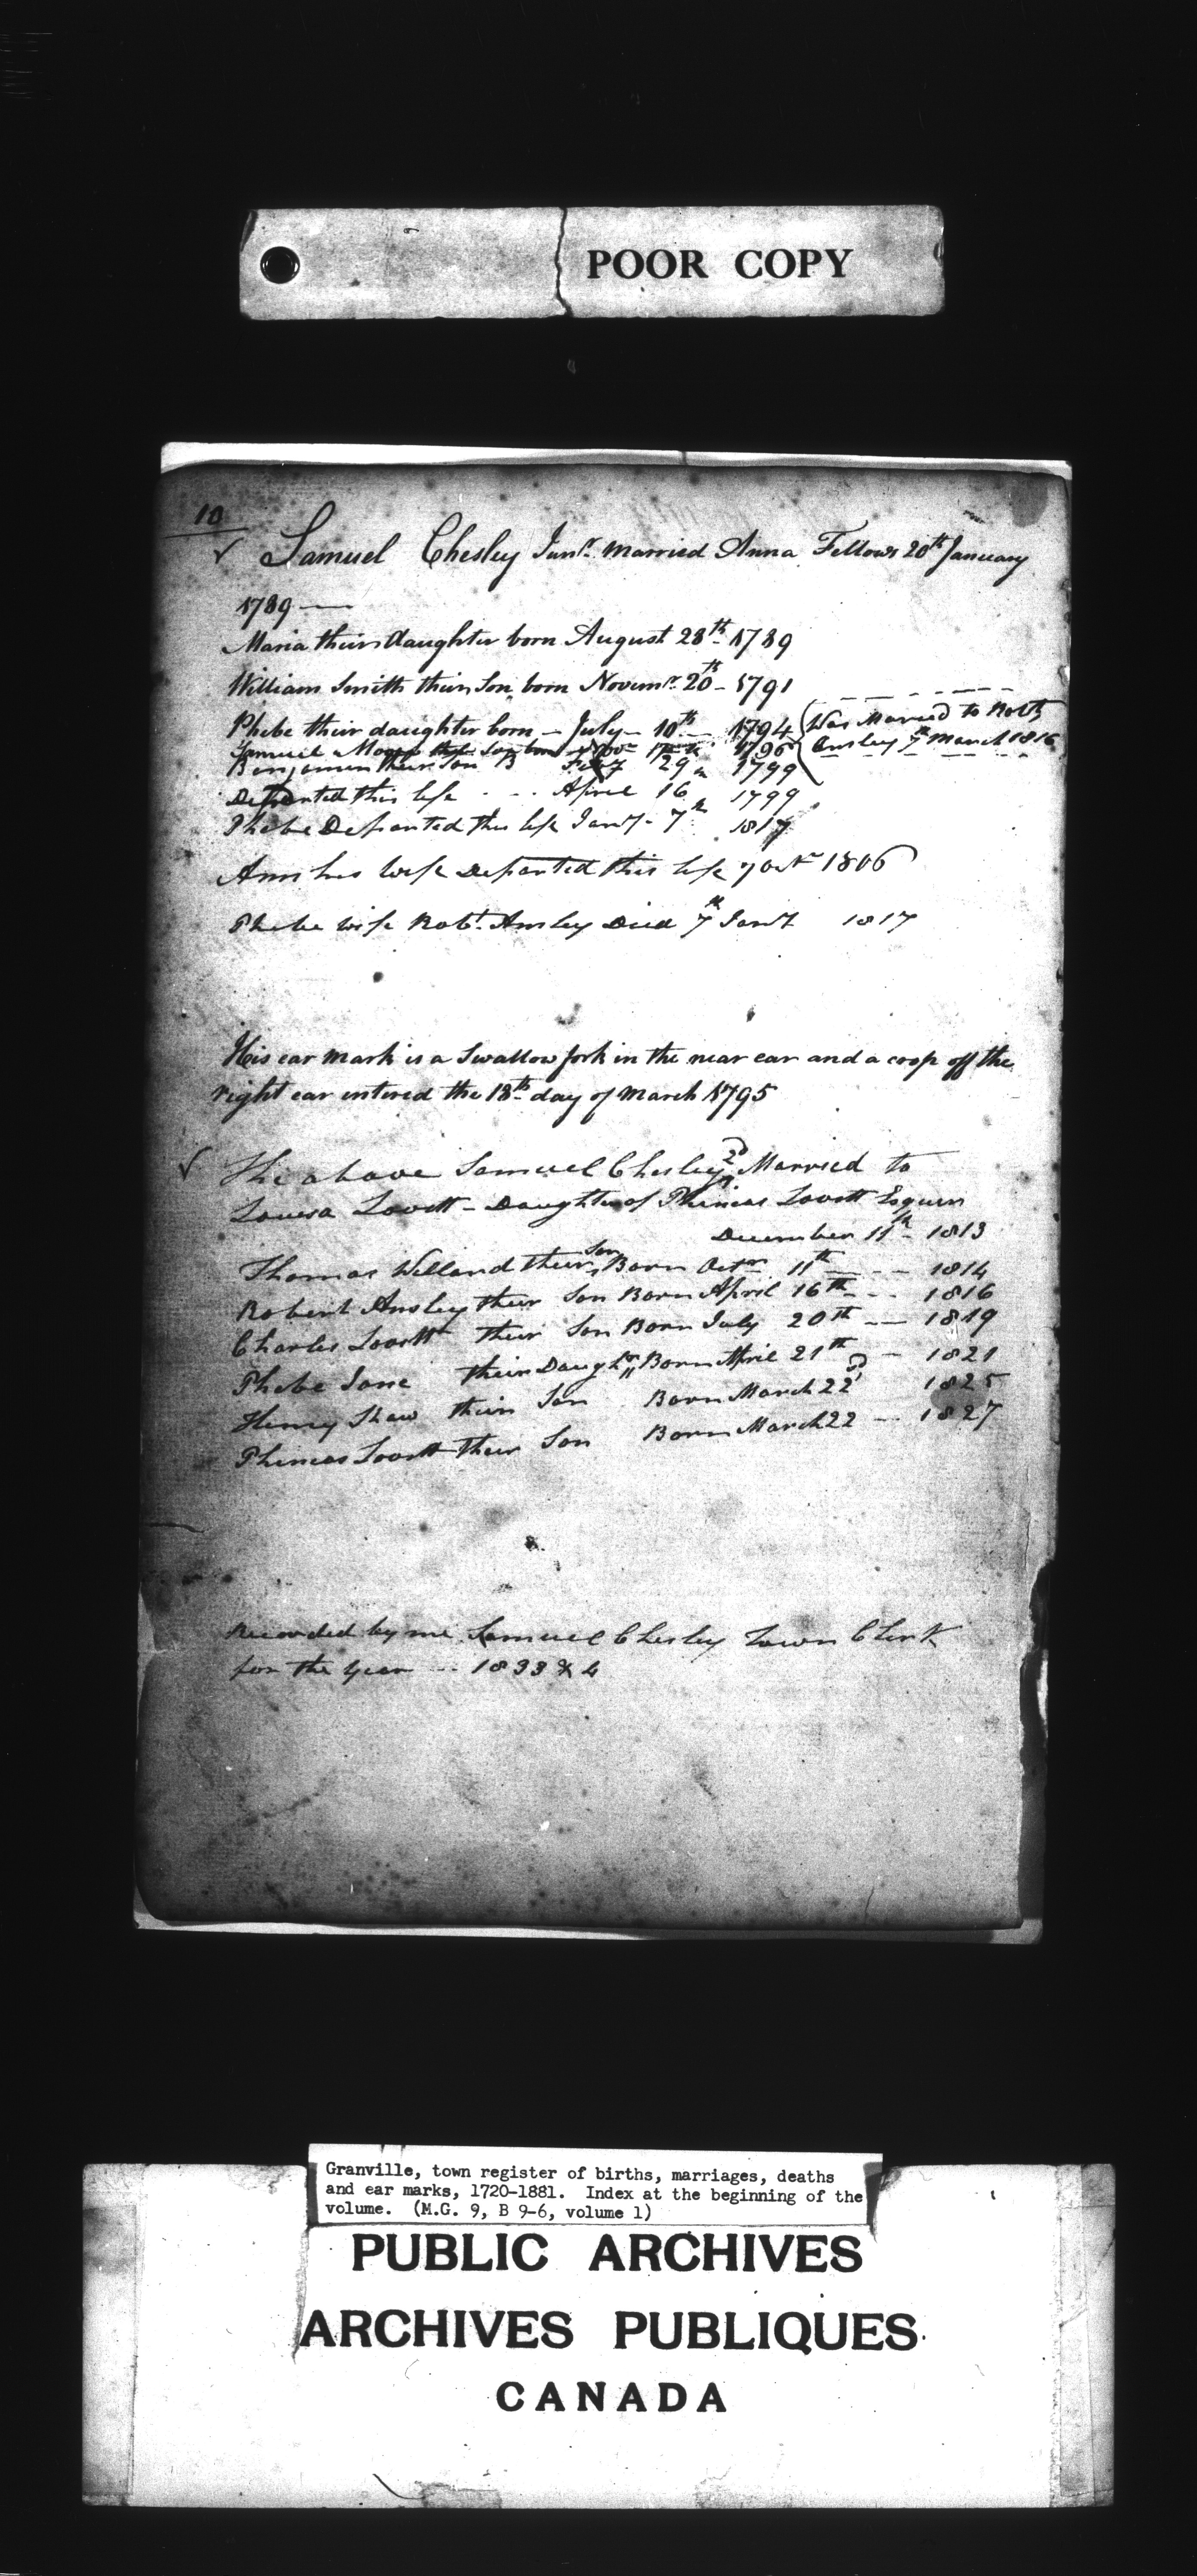 POOR COPY
10
Samuel Chesley Junr. Married Anna Fellows 20th January
1789
Maria their daughter born August 28th 1789
William Smith their Son born Novemr. 20th - 1791
Phebe their daughter born - July - 10th - 1794 (Was Married to Robt
Samuel their Son born Novr 1796 Ansley 7th March 1816
Benjamin their Son B Feby 29 1799
Departed this life - - - April 16 1799
Phebe Departed this life Jany - 7th 1817
Ann his wife Departed this life 7 Octr 1806
Phebe wife Robt. Ansley Died 7th Jany 1817
His ear mark is a Swallow fork in the near ear and a crop off the
right ear entered the 18th day of March 1795
The above Samuel Chesley 2d Married to
Louisa Lovett - Daughter of Phineas Lovett Esquire
December 11th - 1813
Thomas Willand their Son Born Octr 11th - - - 1814
Robert Ansley their Son Born April 16th - - - 1816
Charles Lovett their Son Born July 20th - - 1819
Phebe Jane their Daughtr Born April 21th - 1821
Henry Shaw their Son Born March 22d 1825
Phineas Lovett their Son Born March 22 - - 1827
Recorded by me Samuel Chesley Town Clerk
for the year - - 1833 & 4
Granville, town register of births, marriages, deaths
and ear marks, 1720-1881. Index at the beginning of the
volume. (M.G. 9, B 9-6, volume 1)
PUBLIC ARCHIVES
ARCHIVES PUBLIQUES
CANADA